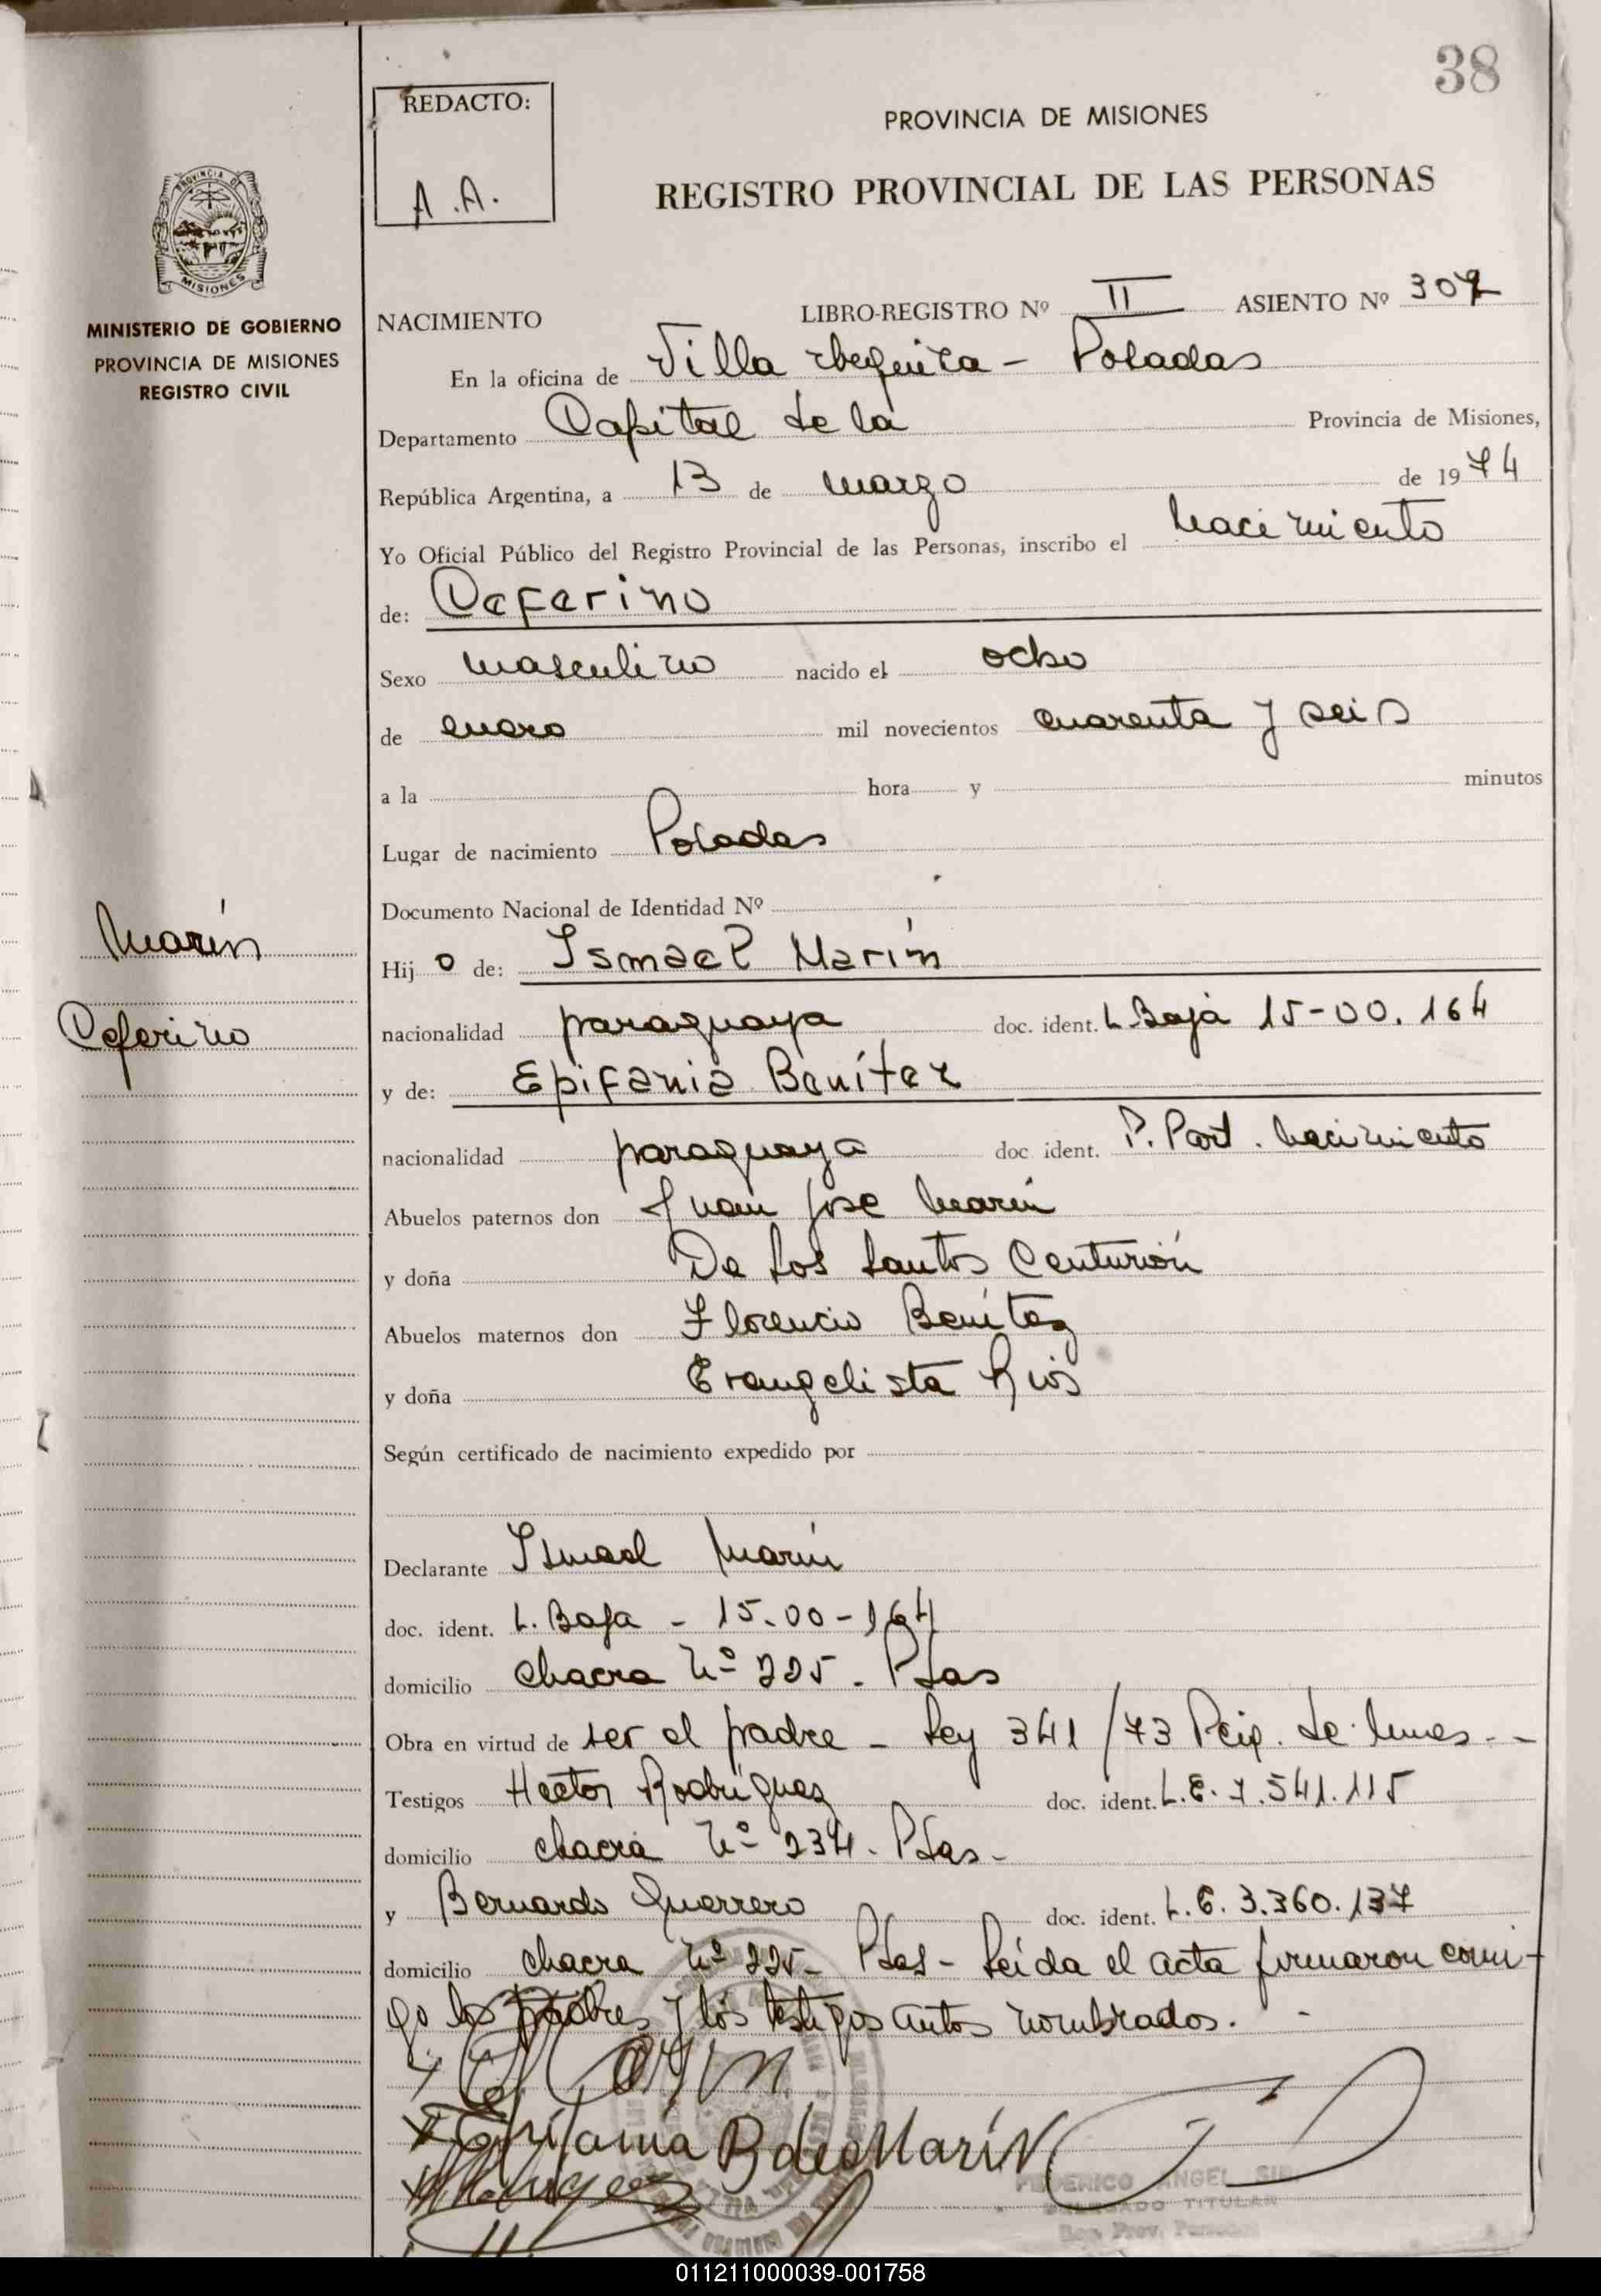 38
REDACTO:
A.A.
PROVINCIA DE MISIONES
REGISTRO PROVINCIAL DE LAS PERSONAS
PROVINCIA DE
MISIONES
MINISTERIO DE GOBIERNO
PROVINCIA DE MISIONES
REGISTRO CIVIL
NACIMIENTO LIBRO-REGISTRO Nº II ASIENTO Nº 307
En la oficina de Villa Urquiza - Posadas
Departamento Capital de la Provincia de Misiones,
República Argentina, a 13 de marzo de 1974
Yo Oficial Público del Registro Provincial de las Personas, inscribo el nacimiento
de: Ceferino
Sexo masculino nacido el ocho
de enero mil novecientos cuarenta y seis
a la hora y minutos
Lugar de nacimiento Posadas
Documento Nacional de Identidad Nº
Marín
Hijo de: Ismael Marín
Ceferino
nacionalidad paraguaya doc. ident. L. Baja 15-00.164
y de: Epifania Benítez
nacionalidad paraguaya doc ident. P. Part. nacimiento
Abuelos paternos don Juan José Marín
y doña De los Santos Centurión
Abuelos maternos don Florencio Benítez
y doña Evangelista Rios
Según certificado de nacimiento expedido por
Declarante Ismael Marín
doc. ident. L. Baja - 15-00-164
domicilio chacra Nº 225. Pdas
Obra en virtud de ser el padre - Ley 341/73 de
Testigos Hector Rodríguez doc. ident. L.E. 7.541.115
domicilio chacra Nº 234. Pdas-
y Bernardo Guerrero doc. ident. L.E. 3.360.137
domicilio chacra Nº 225- Pdas- Leída el acta firmaron conmi-
go los padres y los testigos antes nombrados. -
Epifania B de Marín
FEDERICO ANGEL
DELEGADO TITULAR
011211000039-001758